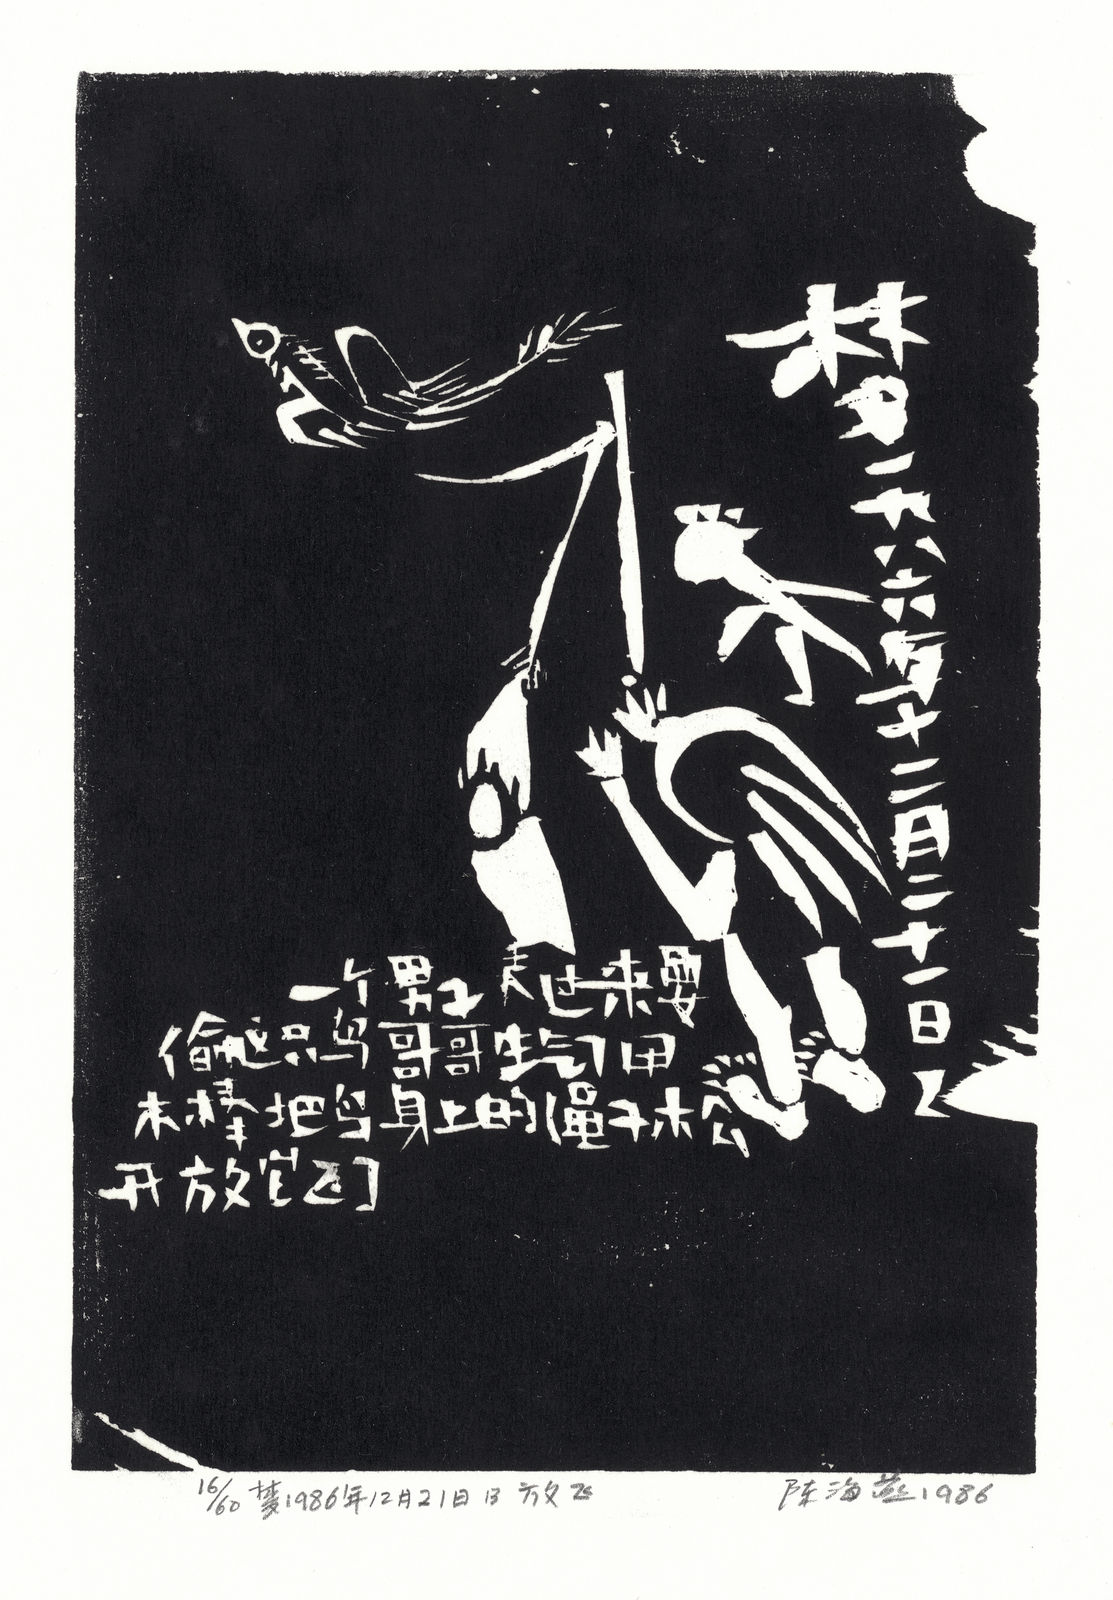 梦一九八六年十二月二十一日乙
一个男子走过来要
偷这只鸟哥哥生气用
木棒把鸟身上的绳子松
开放它飞了
16/60 梦1986年12月21日B 放飞 陈海燕1986